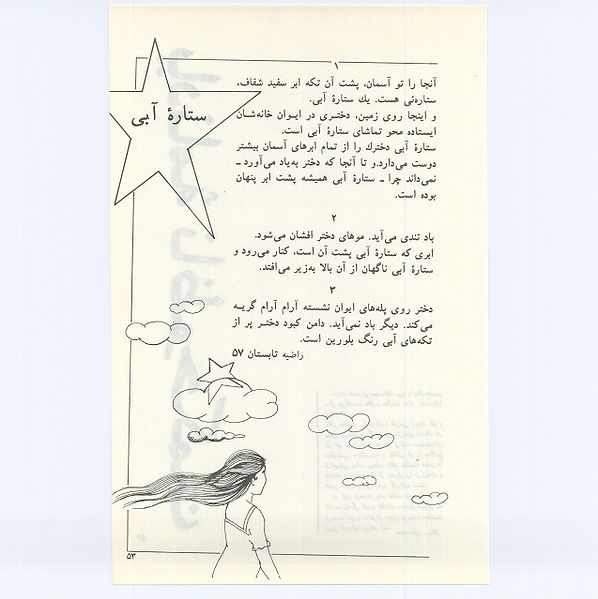 ستارهٔ آبی
۱
آنجا را تو آسمان، پشت آن تکه ابر سفید شفاف،
ستاره‌ئی هست. یك ستارهٔ آبی.
و اینجا روی زمین، دختری در ایوان خانه‌شان
ایستاده محو تماشای ستارهٔ آبی است.
ستارهٔ آبی دخترك را از تمام ابرهای آسمان بیشتر
دوست می‌دارد.و تا آنجا که دختر به‌یاد می‌آورد ـ
نمی‌داند چرا ـ ستارهٔ آبی همیشه پشت ابر پنهان
بوده است.
۲
باد تندی می‌آید. موهای دختر افشان می‌شود.
ابری که ستارهٔ آبی پشت آن است، کنار می‌رود و
ستارهٔ آبی ناگهان از آن بالا به‌زیر می‌افتد.
۳
دختر روی پله‌های ایوان نشسته آرام آرام گریـه
می‌کند. دیگر باد نمی‌آید. دامن کبود دختـر پر از
تکه‌های آبی رنگ بلورین است.
راضیه تابستان ۵۷
۵۳